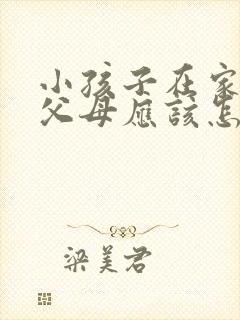 小孩子在家
父母應該怎
梁美君